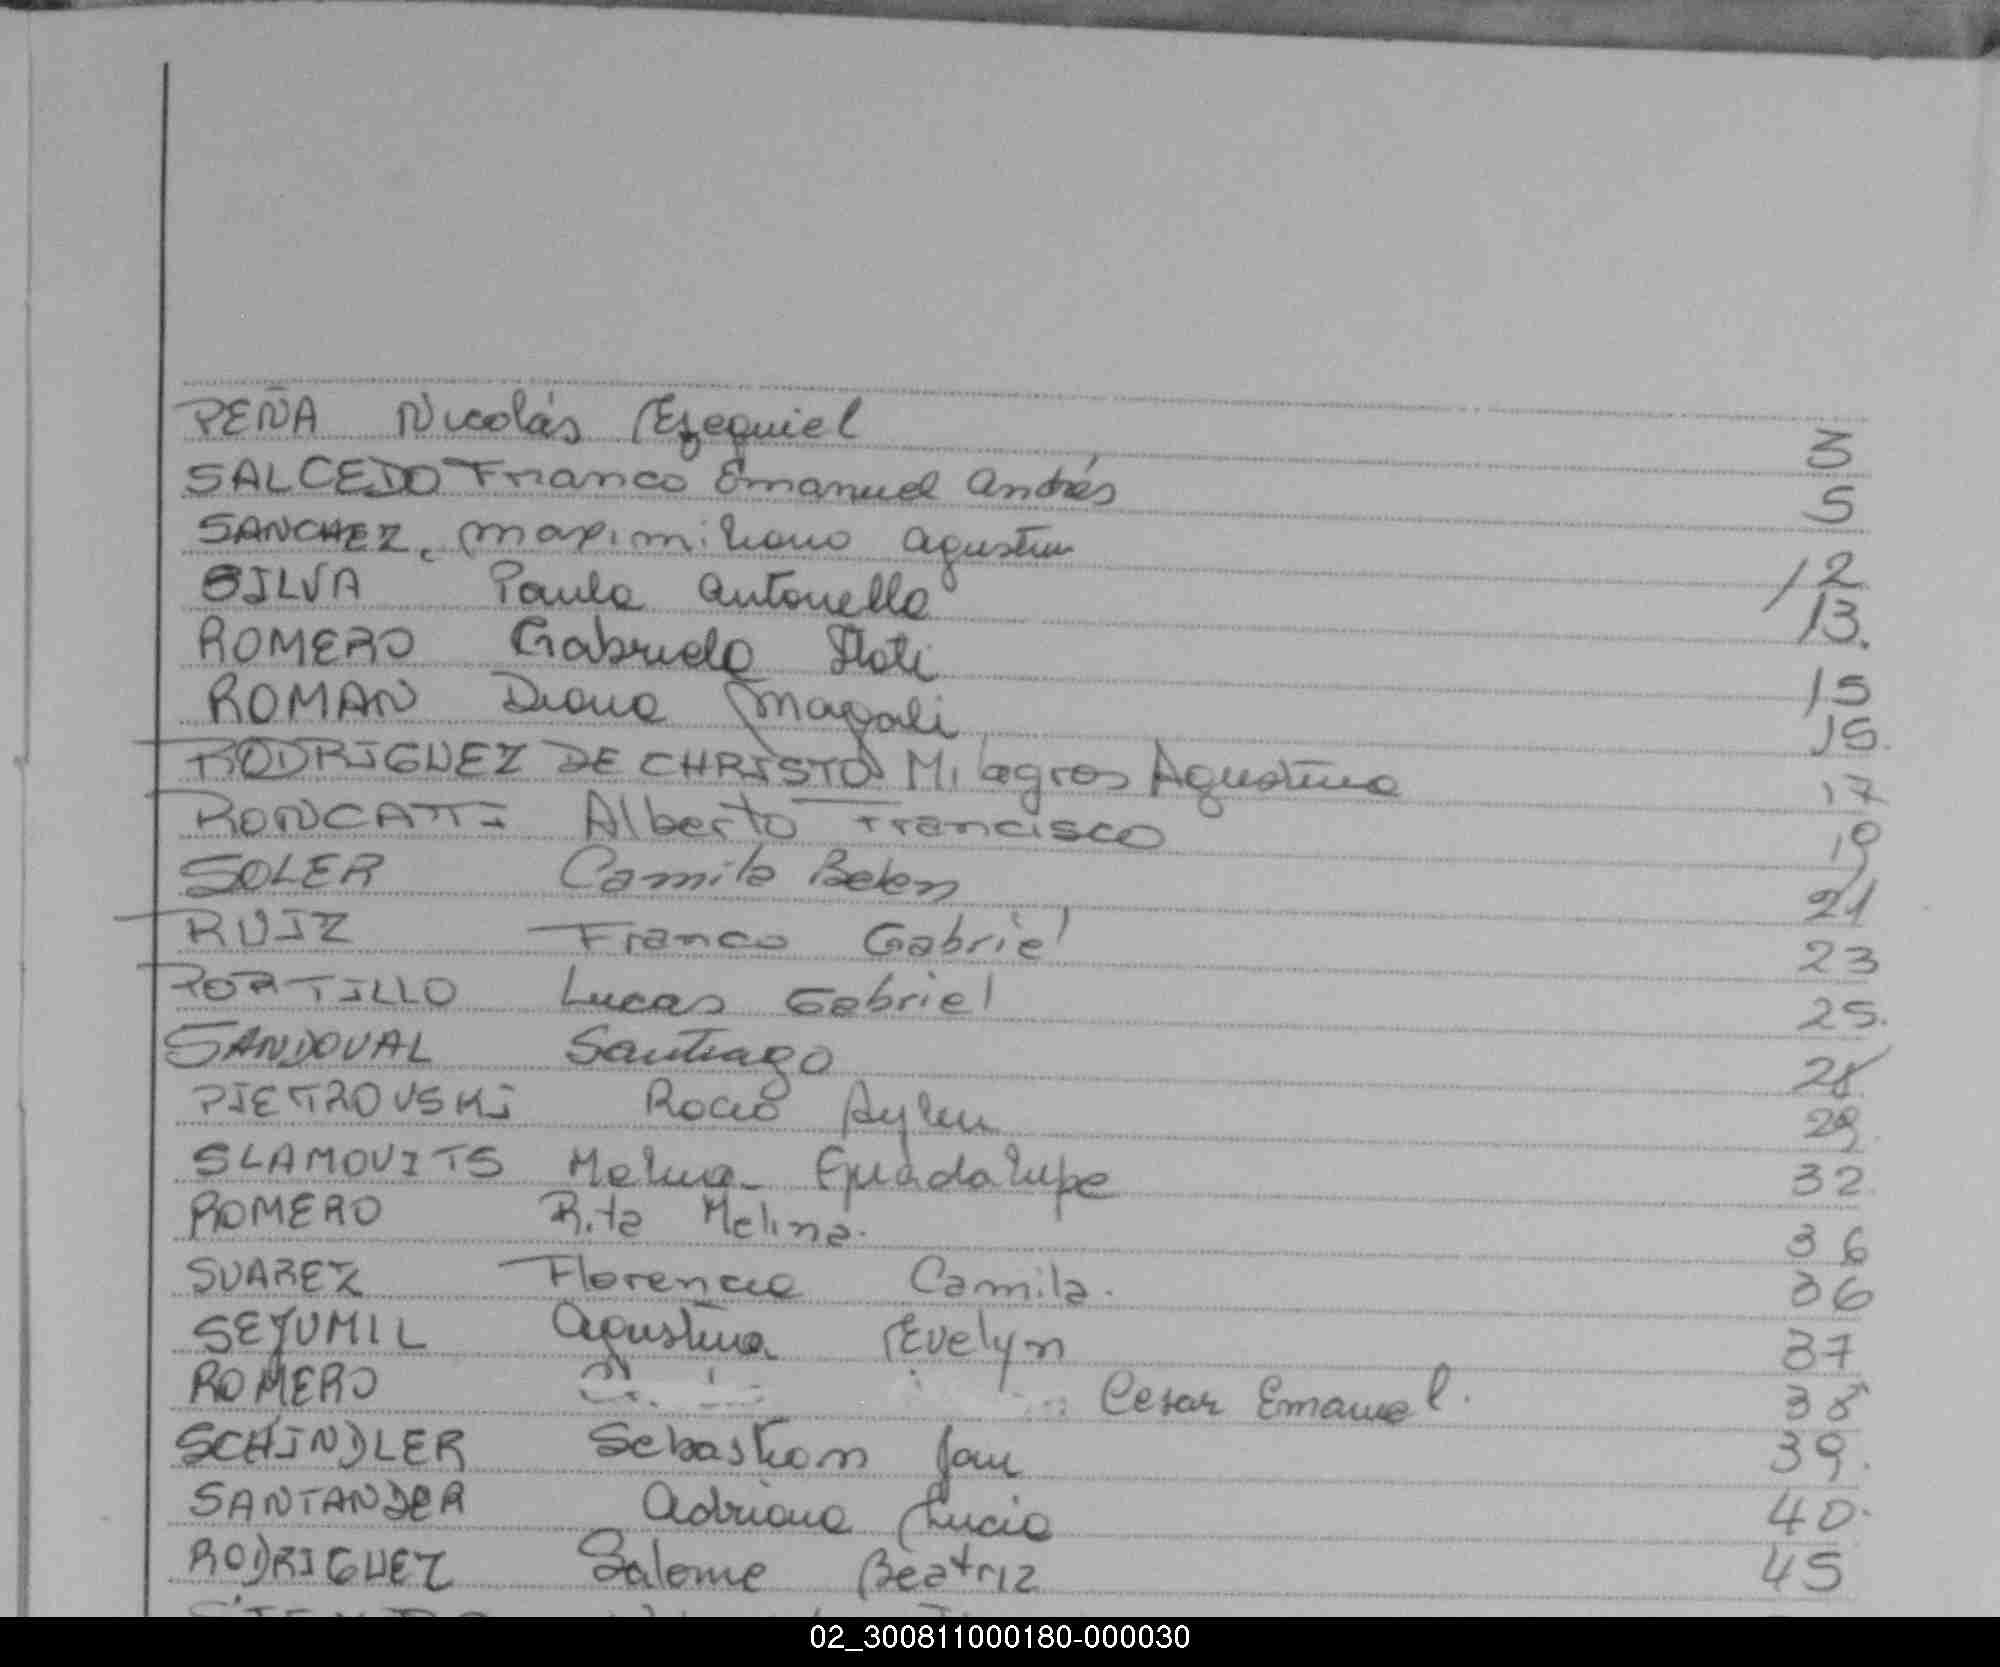 PEÑA Nicolás Ezequiel 3
SALCEDO Franco Emanuel Andrés 5
SANCHEZ Maximiliano Agustin 12
SILVA Paula Antonella 13.
ROMERO Gabriela Itati 15
ROMAN Diana Magali 15.
RODRIGUEZ DE CHRISTO Milagros Agustina 17
RONCATTI Alberto Francisco 19
SOLER Camila Belen 21
RUIZ Franco Gabriel 23
PORTILLO Lucas Gabriel 25.
SANDOVAL Santiago 28
PIETROVSKI Rocio Aylen 29.
SLAMOVITS Melina Guadalupe 32
ROMERO Rita Melina. 36
SUAREZ Florencia Camila. 36
SEJUMIL Agustina Evelyn 37
ROMERO Cesar Emanuel. 38
SCHINDLER Sebastian 39.
SANTANDER Adriana Lucia 40.
RODRIGUEZ Salome Beatriz 45
02_300811000180-000030